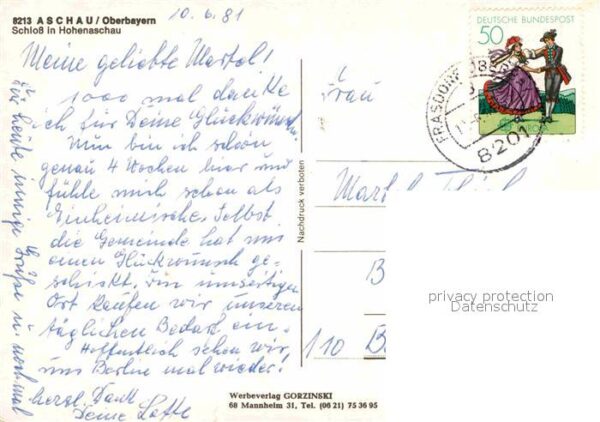 8213 ASCHAU / Oberbayern
Schloß in Hohenaschau
10.6.81
Meine geliebte Martel!
1000 mal danke
ich für Deine Glückwünsche.
Nun bin ich schon
genau 4 Wochen hier und
fühle mich schon als
Einheimische. Selbst
die Gemeinde hat mir
einen Glückwunsch ge-
schickt. Im umseitigen
Ort kaufen wir unseren
täglichen Bedarf ein.
Hoffentlich sehen wir
uns Berlin mal wieder!
Für heute innige Grüße u. nochmal
herzl. Dank
Deine Lotte
Nachdruck verboten
Werbeverlag GORZINSKI
68 Mannheim 31, Tel. (06 21) 75 36 95
DEUTSCHE BUNDESPOST
50
FRASDORF
8201
Frau
B
110 B
privacy protection
Datenschutz